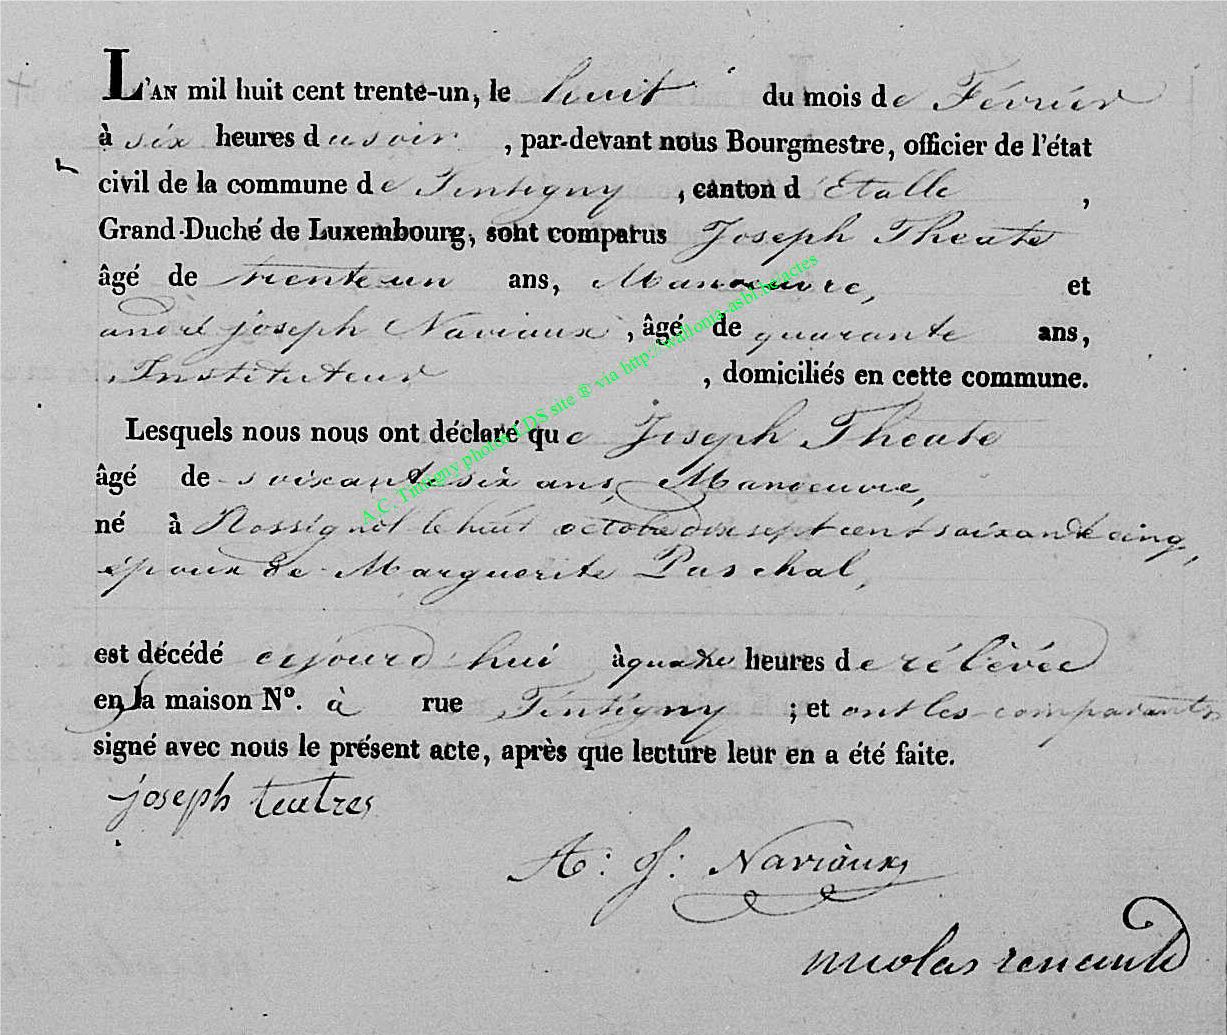 L'AN mil huit cent trente-un, le huit du mois de Février
à six heures dusoir, par-devant nous Bourgmestre, officier de l'état
civil de la commune de Tintigny, canton d'Etalle,
Grand-Duché de Luxembourg, sont comparus Joseph Theate
âgé de trente un ans, Manoeuvre, et
andré joseph Naviaux, âgé de quarante ans,
Instituteur, domiciliés en cette commune.
Lesquels nous nous ont déclaré que Joseph Theate
âgé de soixante six ans, Manoeuvre,
né à Rossignol le huit octobre dix sept cent soixante cinq,
époux de Marguerite Paschal,
est décédé cejourd'hui à quatre heures de rélévée
en la maison N°. à rue Tintigny; et ont les comparants
signé avec nous le présent acte, après que lecture leur en a été faite.
joseph teatres
A: J: Naviaux
nicolas renauld
A.C. Tintigny photos LDS site ® via http://wallonia-asbl.be/actes